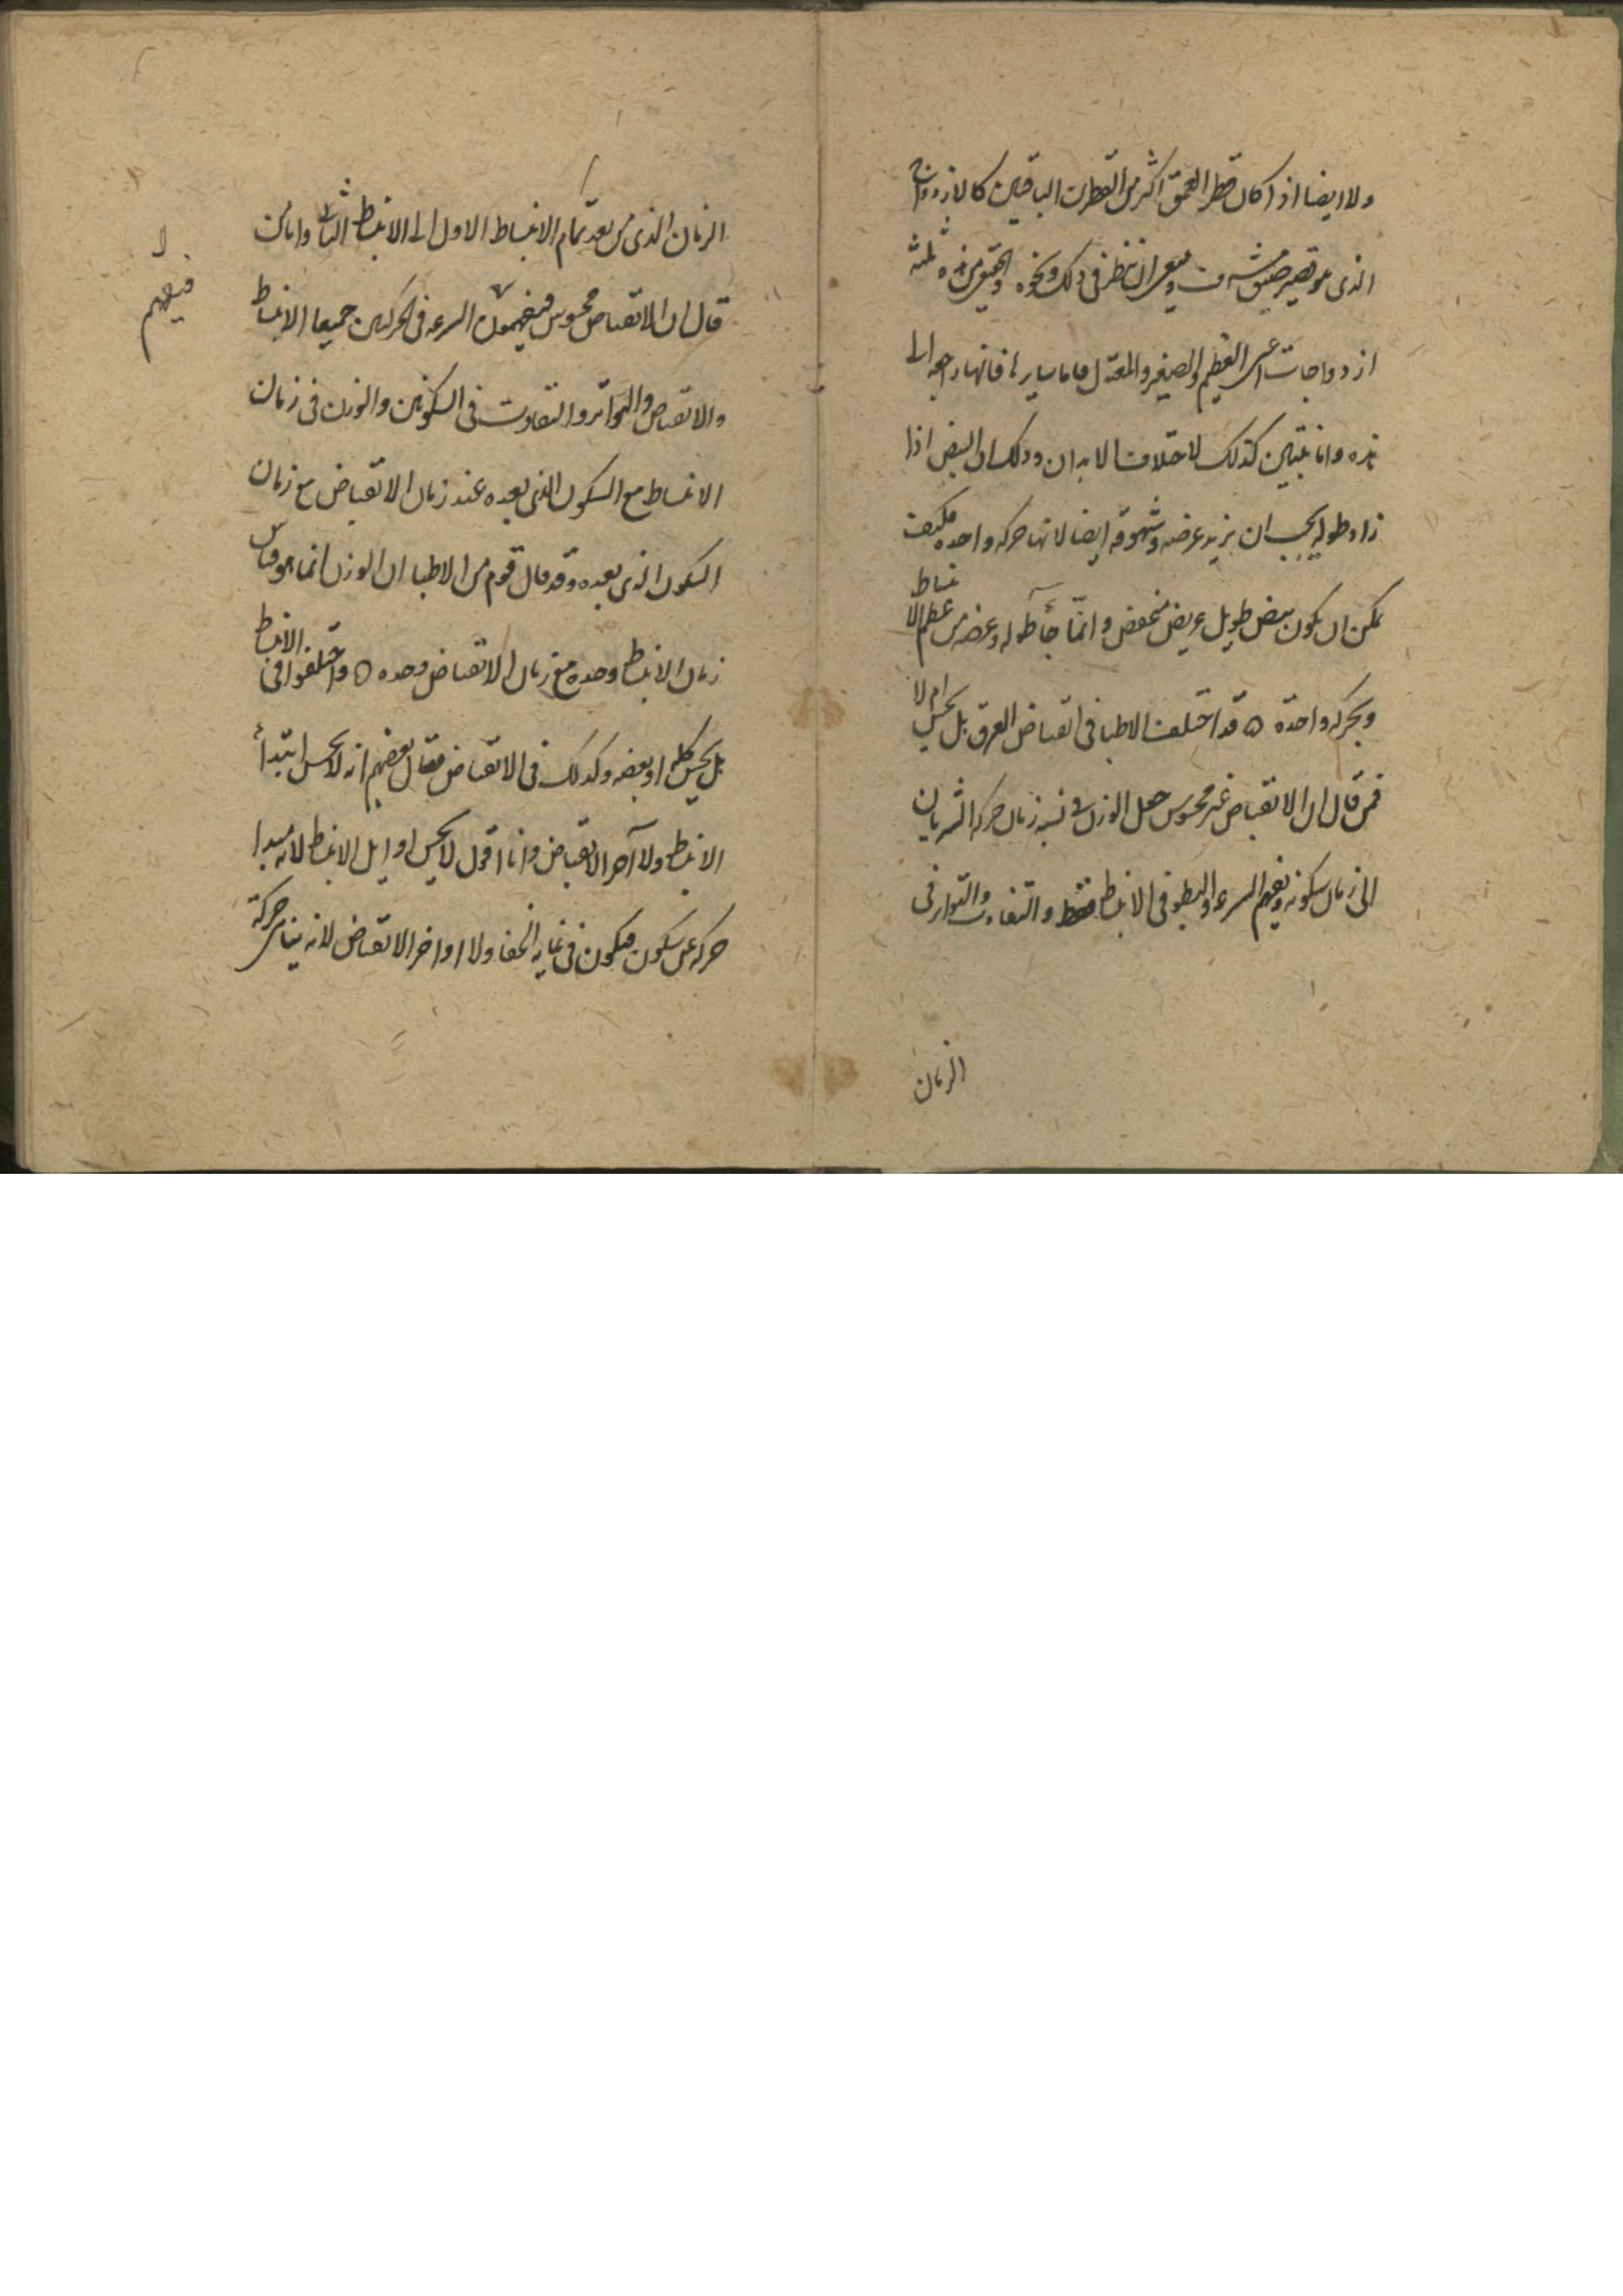 ولا ايضا اذا كان قطر العمق اكثر من القطرين الباقيين كالازدواج
الذى هو قصير ضيق مشرف وينبغى ان تنظر فى ذلك ونحوه والحقيقى من هذه ثلثه
ازدواجات اعنى العظيم والصغير والمعتدل فاما سايرها فانها راجعه الى
هذه وانما تتبين كذلك لاختلاف الابدان وذلك ان النبض اذا
زاد طوله يجب ان يزيد عرضه وشهوقه ايضا لانها حركه واحده فكيف
يمكن ان يكون نبض طويل عريض منخفض وانما جأ طوله وعرضه من عظم الانبساط
وبحركه واحدة ه قد اختلف الاطبا فى انقباض العرق هل يحس ام لا
فمن قال ان الانقباض غير محسوس جعل الوزن فى نسبه زمان حركه الشريان
الى زمان سكونه وتفهم السرعه والبطو فى الانبساط فقط والتفاوت والتواتر فى
الزمان
الزمان الذى من بعد تمام الانبساط الاول الى الانبساط الثانى واما من
قال ان الانقباض محسوس فيفهمون السرعه فى الحركتين جميعا الانبساط
فيفهم
والانقباض والتواتر والتفاوت فى السكونين والوزن فى زمان
الانبساط مع السكون الذى بعده عند زمان الانقباض مع زمان
السكون الذى بعده وقد قال قوم من الاطبا ان الوزن انما هو قياس
زمان الانبساط وحده مع زمان الانقباض وحده ه واختلفوا فى الانبساط
هل يحس كله او بعضه وكذلك فى الانقباض فقال بعضهم انه لا يحس ابتدأ
الانبساط ولا آخر الانقباض وانا اقول لا يحس اوايل الانبساط لانه مبدا
حركه عن سكون فيكون فى غايه الخفا ولا اواخر الانقباض لانه يتناهى حركة